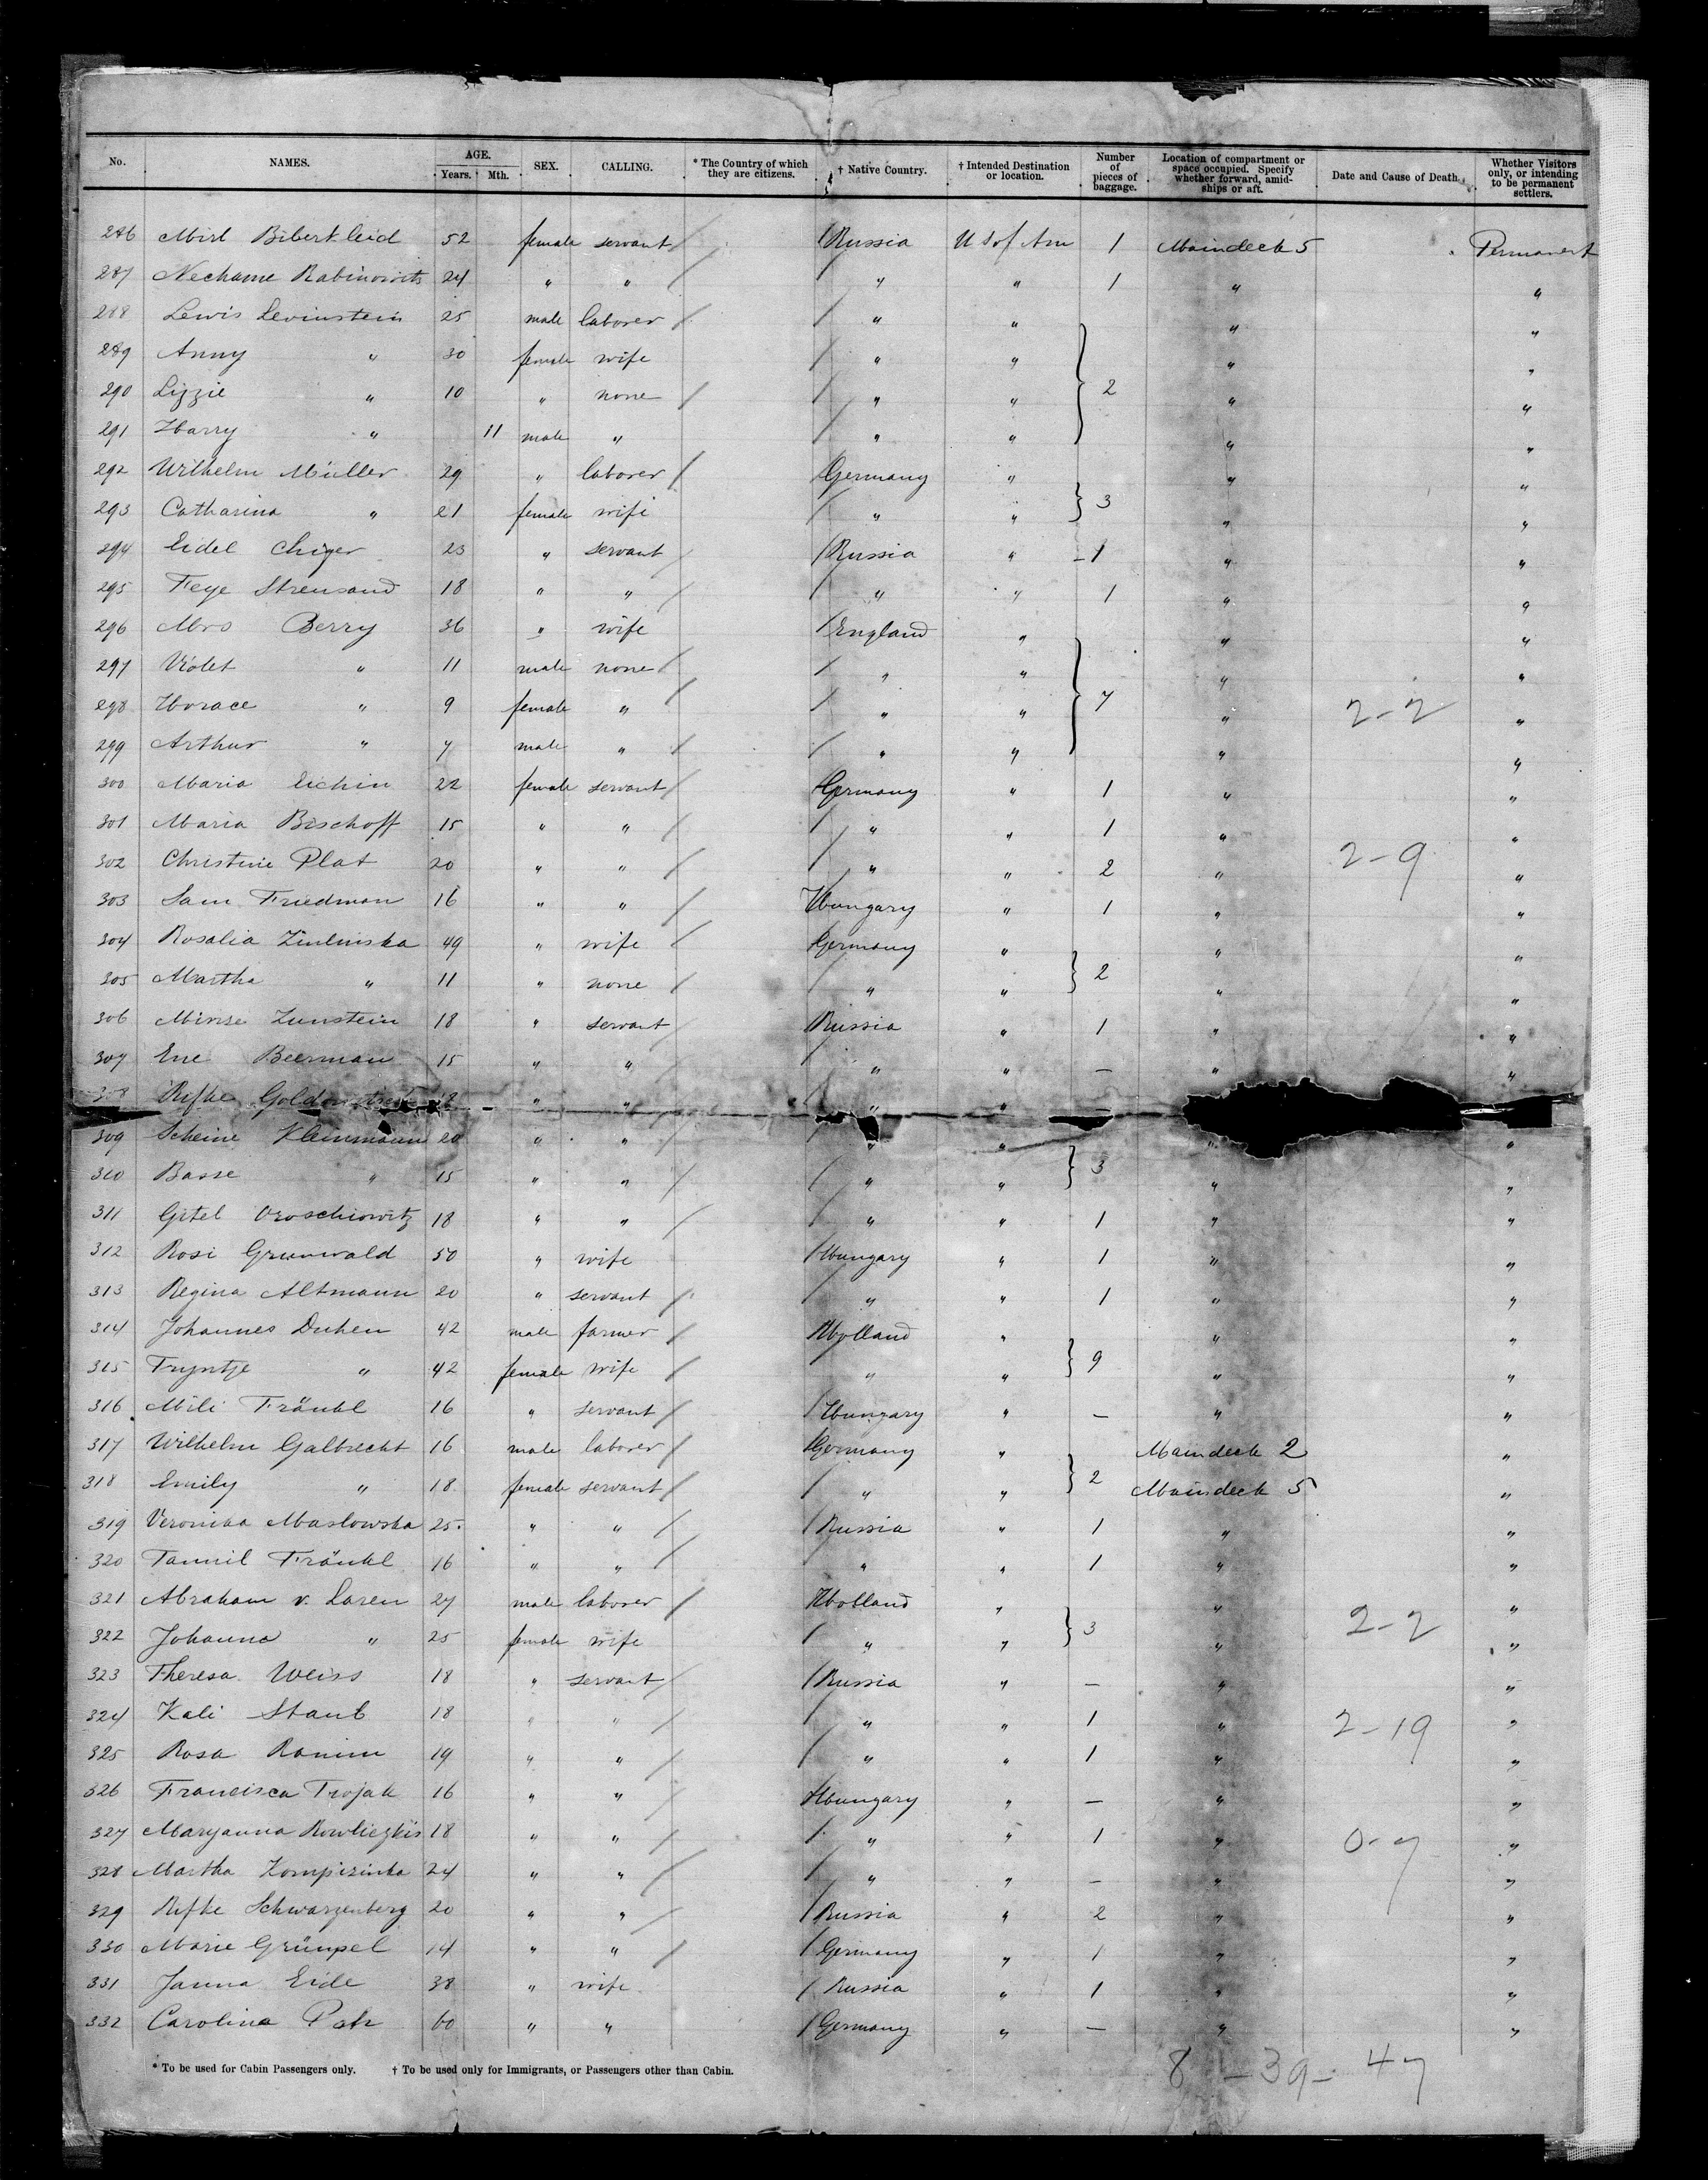 No. NAMES. AGE. Years. Mth. SEX. CALLING. * The Country of which they are citizens. † Native Country. † Intended Destination or location. Number of pieces of baggage. Location of compartment or space occupied. Specify whether forward, amidships or aft. Date and Cause of Death. Whether Visitors only, or intending to be permanent settlers.
286 Mirl Bibertleid 52 female servant / / Russia U S of Am 1 Maindeck 5 Permanent
287 Nechame Rabinowitz 24 " " / / " " 1 " "
288 Lewis Levinstein 25 male laborer / / " " " "
289 Anny " 30 female wife / " " " "
290 Lizzie " 10 " none / / " " 2 " "
291 Harry " 11 male " / " " " "
292 Wilhelm Müller 29 " laborer / / Germany " " "
293 Catharina " 21 female wife / " " 3 " "
294 Eidel Chiger 23 " servant / / Russia " – 1 " "
295 Feye Streusand 18 " " / / " " 1 " "
296 Mrs Berry 36 " wife / England " " "
297 Violet " 11 male none / / " " " "
298 Horace " 9 female " / / " " 7 " 2-2 "
299 Arthur " 7 male " / / " " " "
300 Maria Eichin 22 female servant / Germany " 1 " "
301 Maria Bischoff 15 " " / / " " 1 " "
302 Christine Plat 20 " " / / " " 2 " 2-9 "
303 Sam Friedman 16 " " / Hungary " 1 " "
304 Rosalia 49 " wife / Germany " " "
305 Martha " 11 " none / / " " 2 " "
306 Minse Zunstein 18 " servant / Russia " 1 " "
307 Ene Beerman 15 " " / / " " — " "
308 Rifke 18 " " / / " " —
309 Scheine Kleinmann 20 " " / / " " " "
310 Basse " 15 " " / / " " 3 " "
311 Gitel Oroschowitz 18 " " / / " " 1 " "
312 Rosi Grunwald 50 " wife / Hungary " 1 " "
313 Regina Altmann 20 " servant / / " " 1 " "
314 Johannes Duhen 42 male farmer / Holland " " "
315 Tryntje " 42 female wife / " " 9 " "
316 Mili Fränkl 16 " servant / / Hungary " — " "
317 Wilhelm Galbrecht 16 male laborer / / Germany " Maindeck 2 "
318 Emily " 18 female servant / / " " 2 Maindeck 5 "
319 Veronika Maslowska 25 " " / / Russia " 1 " "
320 Tannil Fränkl 16 " " / / " " 1 " "
321 Abraham v. Laren 27 male laborer / Holland " " "
322 Johanna " 25 female wife / " " 3 " 2-2 "
323 Theresa Weiss 18 " servant / / Russia " — " "
324 Kali Staub 18 " " / / " " 1 " 2-19 "
325 Rosa Ranim 19 " " / / " " 1 " "
326 Francisca Trojak 16 " " / Hungary " — " "
327 Maryanna 18 " " / / " " 1 " 0-7 "
328 Martha 24 " " / / " " — " "
329 Rifke Schwarzenberg 20 " " / / Russia " 2 " "
330 Marie Grünpel 14 " " / / Germany " 1 " "
331 Janna Eide 38 " wife / Russia " 1 " "
332 Carolina 60 " " / Germany " — " "
8 – 39 – 47
* To be used for Cabin Passengers only. † To be used only for Immigrants, or Passengers other than Cabin.